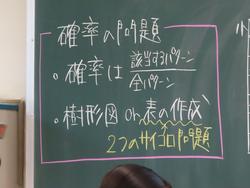 確率の問題
。確率は 該当するパターン
全パターン
。樹形図 or 表の作成
2つのサイコロ問題